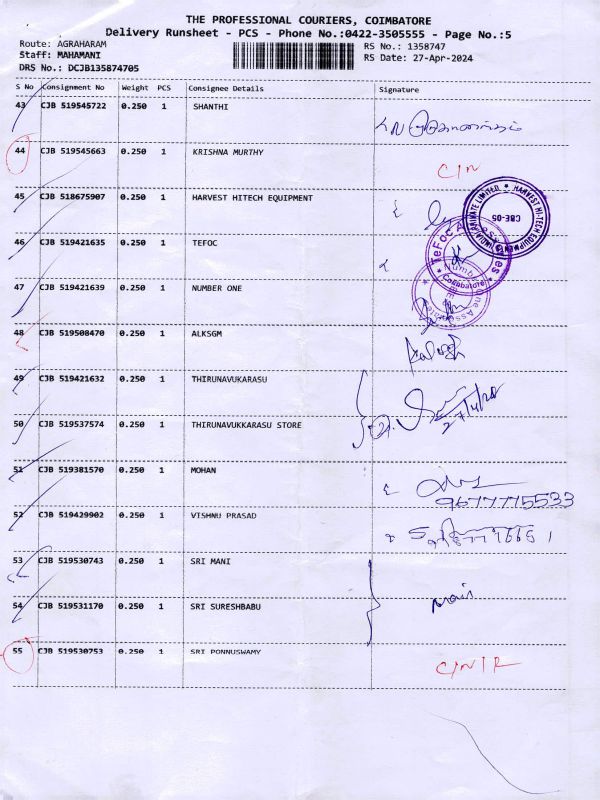 THE PROFESSIONAL COURIERS, COIMBATORE
Delivery Runsheet - PCS - Phone No.:0422-3505555 - Page No.:5
Route: AGRAHARAM RS No.: 1358747
Staff: MAHAMANI RS Date: 27-Apr-2024
DRS No.: DCJB135874705
S No Consignment No Weight PCS Consignee Details Signature
43 CJB 519545722 0.250 1 SHANTHI
44 CJB 519545663 0.250 1 KRISHNA MURTHY
45 CJB 518675907 0.250 1 HARVEST HITECH EQUIPMENT
HARVEST HI-TECH EQUIPMENTS (INDIA) PRIVATE LIMITED
CBE-05
46 CJB 519421635 0.250 1 TEFOC
Coimbatore
47 CJB 519421639 0.250 1 NUMBER ONE
48 CJB 519508470 0.250 1 ALKSGM
49 CJB 519421632 0.250 1 THIRUNAVUKARASU
50 CJB 519537574 0.250 1 THIRUNAVUKKARASU STORE
51 CJB 519381570 0.250 1 MOHAN
9677775533
52 CJB 519429902 0.250 1 VISHNU PRASAD
53 CJB 519530743 0.250 1 SRI MANI
54 CJB 519531170 0.250 1 SRI SURESHBABU
55 CJB 519530753 0.250 1 SRI PONNUSWAMY